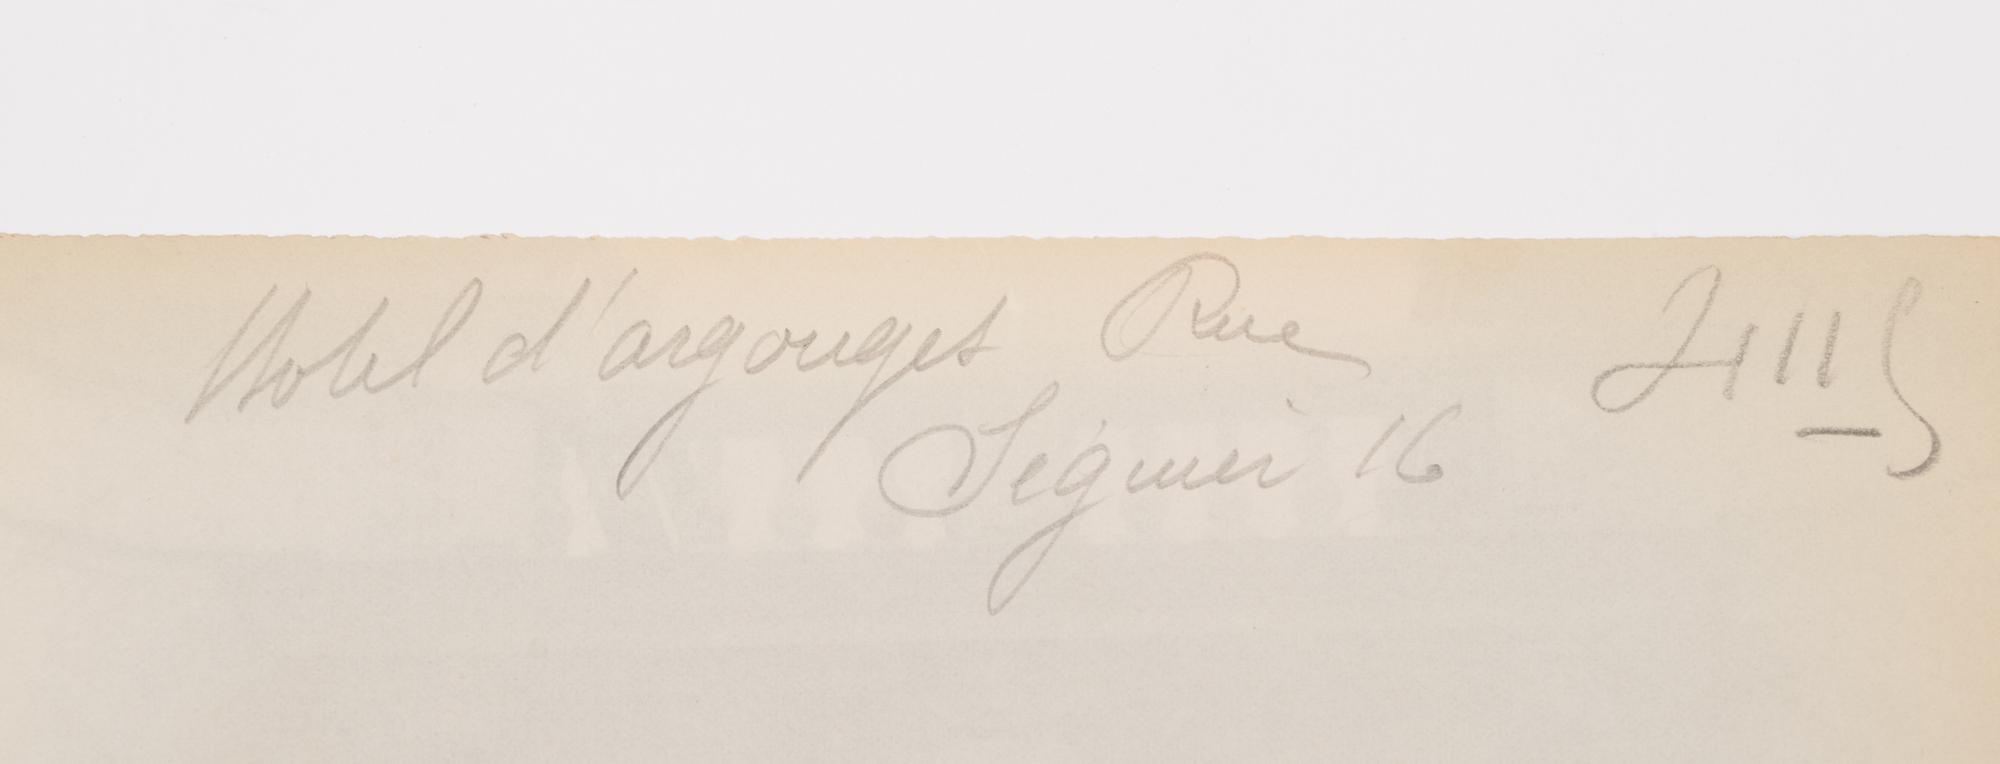 Hotel d'argouges Rue
Séguier 16